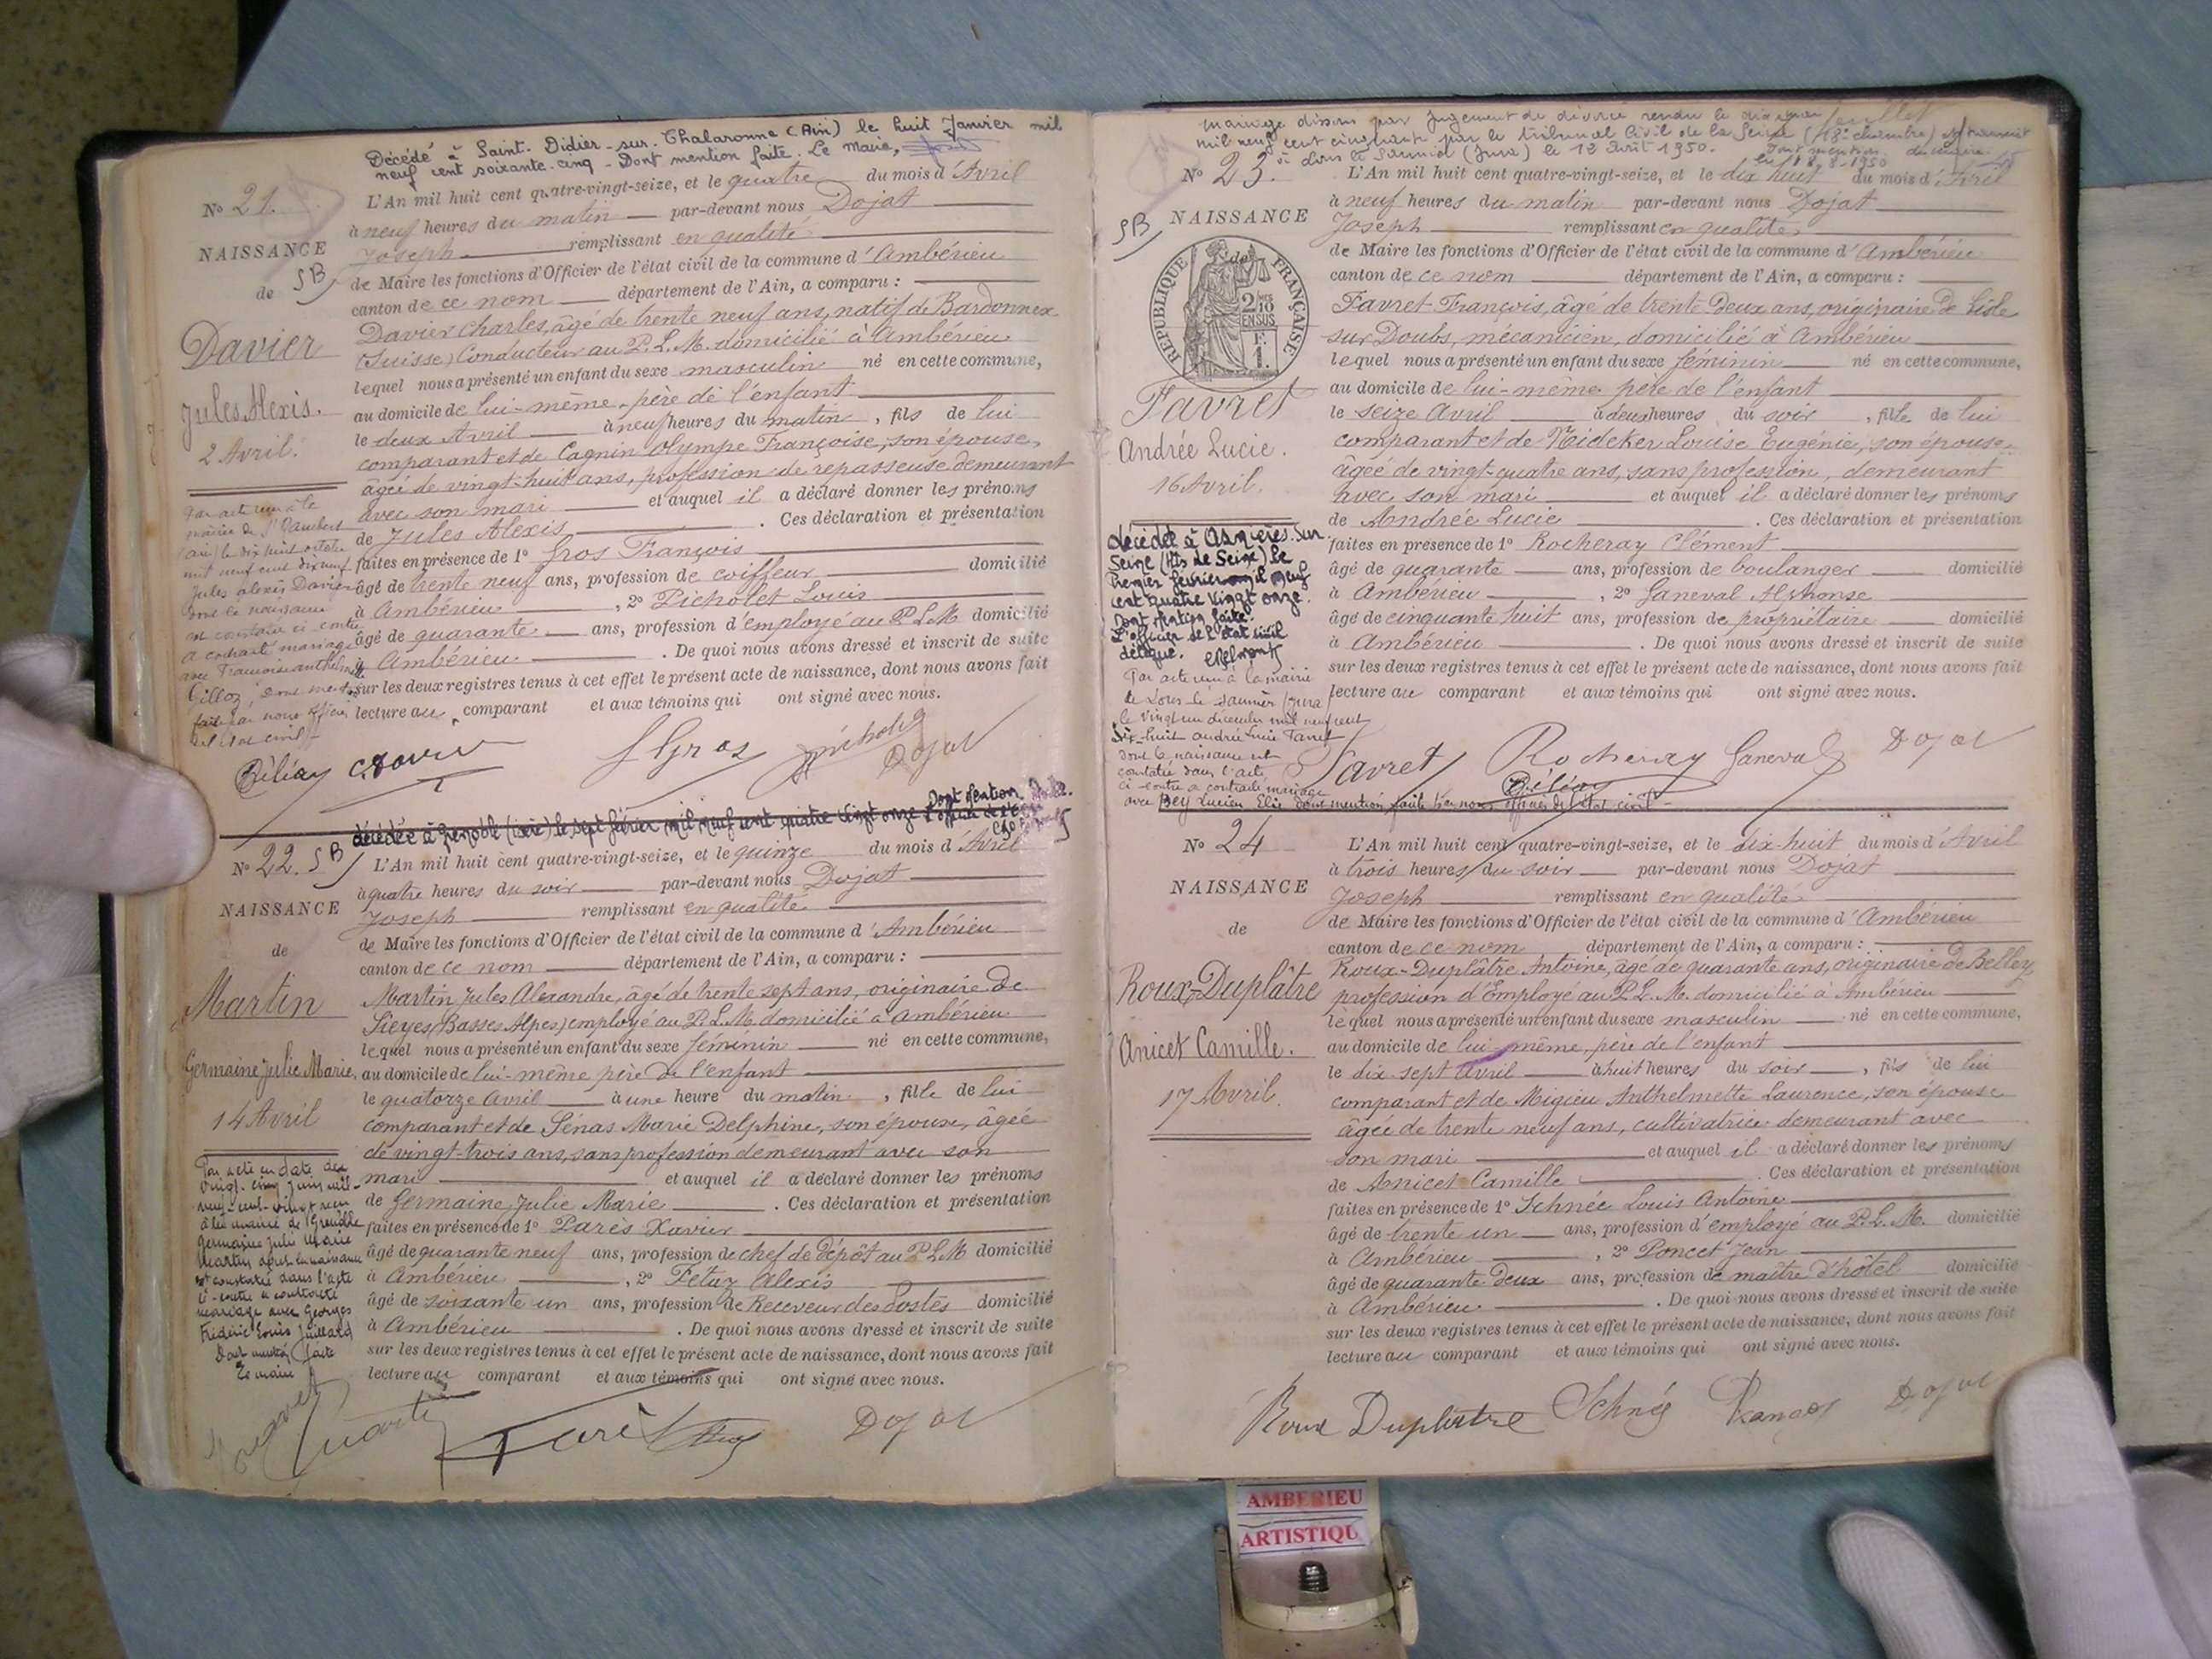 Décédé à Saint-Didier-sur-Chalaronne (Ain) le huit Janvier mil
neuf cent soixante-cinq - Dont mention faite. Le Maire,
N° 21.
NAISSANCE
de
SB
Davier
Jules Alexis.
2 Avril.
L'An mil huit cent quatre-vingt-seize, et le quatre du mois d'Avril
à neuf heures du matin par-devant nous Dojat
Joseph remplissant en qualité
de Maire les fonctions d'Officier de l'état civil de la commune d'Ambérieu
canton de ce nom département de l'Ain, a comparu :
Davier Charles, âgé de trente neuf ans, natif de Bardonnex
(Suisse) Conducteur au P. L. M. domicilié à Ambérieu
lequel nous a présenté un enfant du sexe masculin né en cette commune,
au domicile de lui-même, père de l'enfant
le deux Avril à neuf heures du matin, fils de lui
comparant et de Cagnin Olympe Françoise, son épouse,
âgée de vingt-huit ans, profession de repasseuse demeurant
avec son mari et auquel il a déclaré donner les prénoms
de Jules Alexis . Ces déclaration et présentation
faites en présence de 1° Gros François
âgé de trente neuf ans, profession de coiffeur domicilié
à Ambérieu , 2° Picholet Louis
âgé de quarante ans, profession d'employé au P L M domicilié
à Ambérieu . De quoi nous avons dressé et inscrit de suite
sur les deux registres tenus à cet effet le présent acte de naissance, dont nous avons fait
lecture au comparant et aux témoins qui ont signé avec nous.
Par acte reçu à la
mairie de St Rambert
(ain) le dix huit octobre
mil neuf cent dix neuf
Jules alexis Davier
dont la naissance
est constatée ci contre
a contracté mariage
avec Françoise Anthelmette
Billoz, dont mention
faite par nous officier
de l'état civil
Béliay CDavier FGros Picholet Dojat
décédée à Grenoble (isère) le sept février mil neuf cent quatre vingt onze Dont mention faite.
N° 22. SB
NAISSANCE
de
Martin
Germaine Julie Marie.
14 Avril
L'An mil huit cent quatre-vingt-seize, et le quinze du mois d'Avril
à quatre heures du soir par-devant nous Dojat
Joseph remplissant en qualité
de Maire les fonctions d'Officier de l'état civil de la commune d'Ambérieu
canton de ce nom département de l'Ain, a comparu :
Martin Jules Alexandre, âgé de trente sept ans, originaire de
Sieyes (Basses Alpes) employé au P. L. M. domicilié à Ambérieu
lequel nous a présenté un enfant du sexe féminin né en cette commune,
au domicile de lui-même père de l'enfant
le quatorze Avril à une heure du matin, fille de lui
comparant et de Sénas Marie Delphine, son épouse, âgée
de vingt-trois ans, sans profession demeurant avec son
mari et auquel il a déclaré donner les prénoms
de Germaine Julie Marie . Ces déclaration et présentation
faites en présence de 1° Parès Xavier
âgé de quarante neuf ans, profession de chef de dépôt au P L M domicilié
à Ambérieu , 2° Fétaz Alexis
âgé de soixante un ans, profession de Receveur des Postes domicilié
à Ambérieu . De quoi nous avons dressé et inscrit de suite
sur les deux registres tenus à cet effet le présent acte de naissance, dont nous avons fait
lecture au comparant et aux témoins qui ont signé avec nous.
Par acte en date du
vingt-cinq juin mil-
neuf-cent-vingt
à la mairie de Grenoble
Germaine Julie Marie
Martin dont la naissance
est constatée dans l'acte
ci-contre a contracté
mariage avec Georges
Frédéric Louis Juillard
Dont mention faite
Le maire
Martin Parès Dojat
mariage dissous par jugement de divorce rendu le dix juillet
mil neuf cent cinquante par le tribunal Civil de la Seine (12e chambre)
à Lons le Saunier (Jura) le 12 Août 1950. Dont mention
le 18-8-1950
N° 23.
SB
NAISSANCE
de
REPUBLIQUE FRANÇAISE
2/10 EN SUS
F.
1.
Favret
Andrée Lucie.
16 Avril.
L'An mil huit cent quatre-vingt-seize, et le dix huit du mois d'Avril
à neuf heures du matin par-devant nous Dojat
Joseph remplissant en qualité
de Maire les fonctions d'Officier de l'état civil de la commune d'Ambérieu
canton de ce nom département de l'Ain, a comparu :
Favret François, âgé de trente deux ans, originaire de Lisle
sur Doubs, mécanicien, domicilié à Ambérieu
lequel nous a présenté un enfant du sexe féminin né en cette commune,
au domicile de lui-même père de l'enfant
le seize Avril à deux heures du soir, fille de lui
comparant et de Nideker Louise Eugénie, son épouse,
âgée de vingt-quatre ans, sans profession, demeurant
avec son mari et auquel il a déclaré donner les prénoms
de Andrée Lucie . Ces déclaration et présentation
faites en présence de 1° Rocheray Clément
âgé de quarante ans, profession de boulanger domicilié
à Ambérieu , 2° Ganeval Alphonse
âgé de cinquante huit ans, profession de propriétaire domicilié
à Ambérieu . De quoi nous avons dressé et inscrit de suite
sur les deux registres tenus à cet effet le présent acte de naissance, dont nous avons fait
lecture au comparant et aux témoins qui ont signé avec nous.
décédée à Asnières. Sur
Seine (Hts de Seine) le
Premier février mil neuf
cent quatre vingt onze.
Dont mention faite.
L'officier de l'état civil
délégué.
Par acte reçu à la mairie
de Lons le Saunier (Jura)
le vingt un décembre mil neuf cent
dix-huit andrée Lucie Favret
dont la naissance est
constatée dans l'acte
ci-contre a contracté mariage
avec Bey Lucien Elie dont mention faite par nous officier de l'état civil -
Favret Rocheray Ganeval Dojat
Béliay
N° 24
NAISSANCE
de
Roux-Duplâtre
Anicet Camille.
17 Avril.
L'An mil huit cent quatre-vingt-seize, et le dix-huit du mois d'Avril
à trois heures du soir par-devant nous Dojat
Joseph remplissant en qualité
de Maire les fonctions d'Officier de l'état civil de la commune d'Ambérieu
canton de ce nom département de l'Ain, a comparu :
Roux-Duplâtre Antoine, âgé de quarante ans, originaire de Belley,
profession d'Employé au P. L. M. domicilié à Ambérieu
lequel nous a présenté un enfant du sexe masculin né en cette commune,
au domicile de lui-même, père de l'enfant
le dix-sept Avril à huit heures du soir, fils de lui
comparant et de Migieu Anthelmette Laurence, son épouse
âgée de trente neuf ans, cultivatrice demeurant avec
son mari et auquel il a déclaré donner les prénoms
de Anicet Camille . Ces déclaration et présentation
faites en présence de 1° Schnée Louis Antoine
âgé de trente un ans, profession d'employé au P. L. M. domicilié
à Ambérieu , 2° Poncet Jean
âgé de quarante deux ans, profession de maître d'hôtel domicilié
à Ambérieu . De quoi nous avons dressé et inscrit de suite
sur les deux registres tenus à cet effet le présent acte de naissance, dont nous avons fait
lecture au comparant et aux témoins qui ont signé avec nous.
Roux Duplatre Schnée Dojat
AMBERIEU
ARTISTIQU